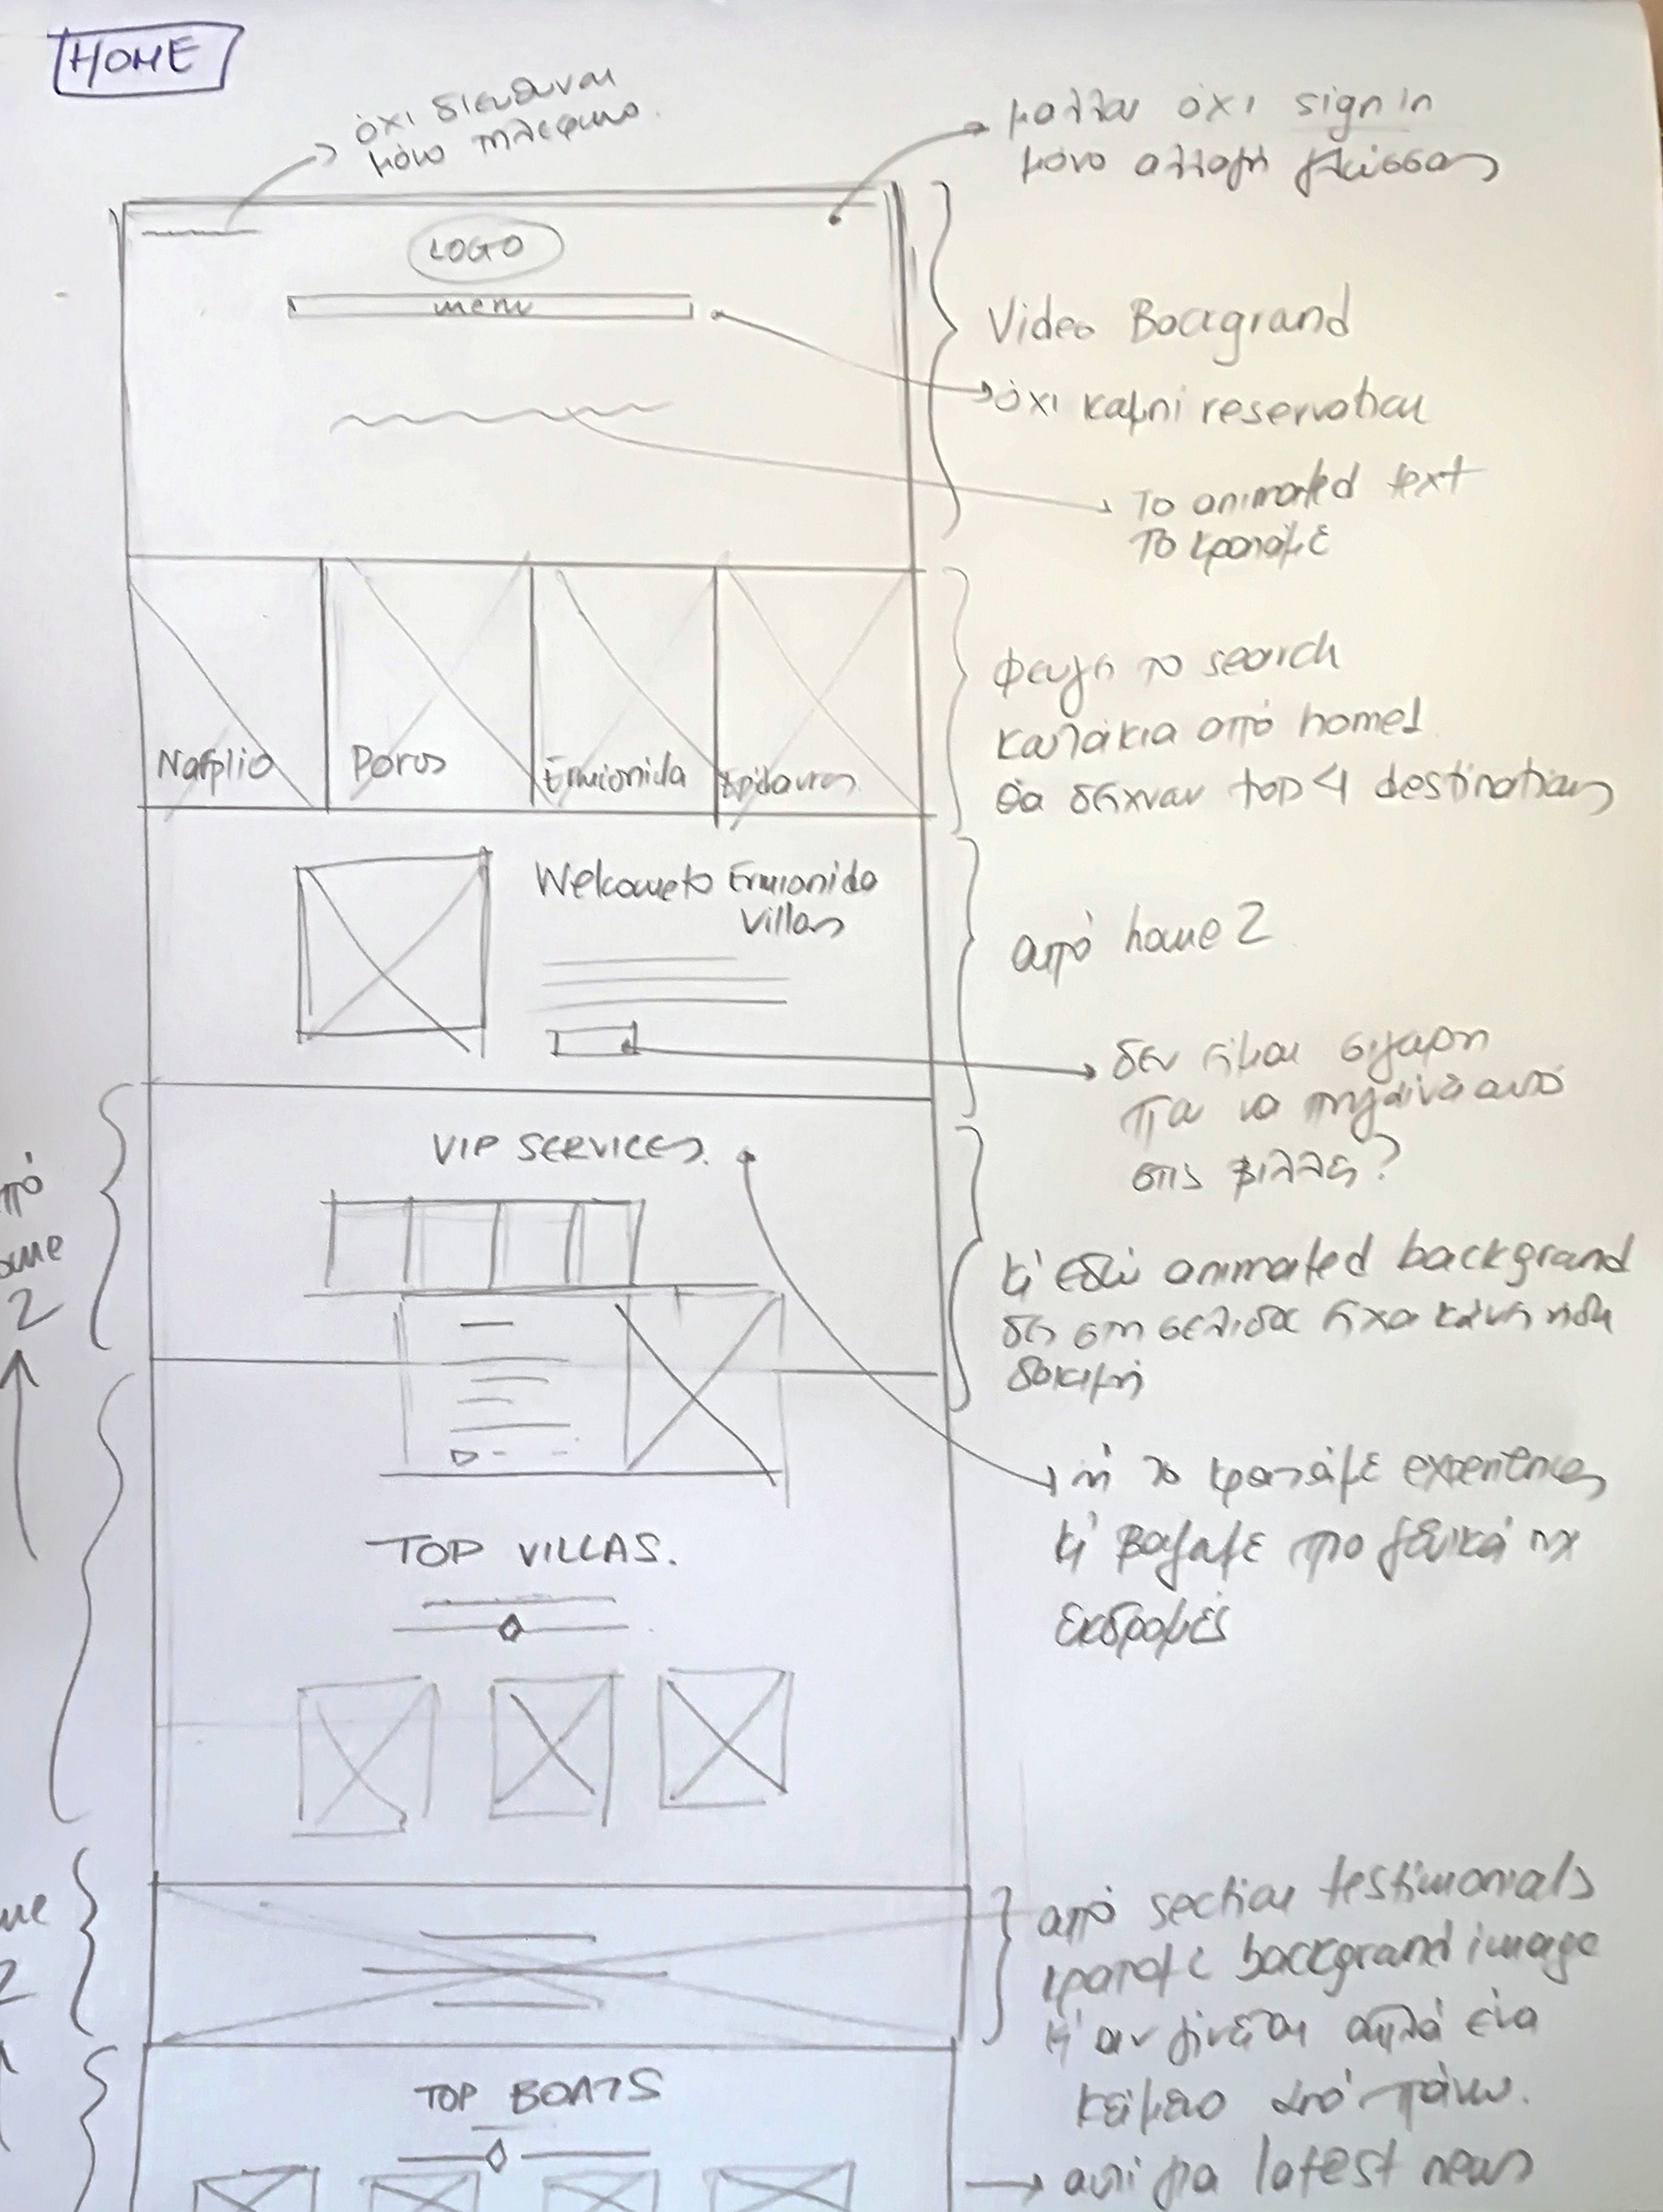 HOME
όχι διευθυνση
μόνο τηλεφωνο.
μαλλον όχι sign in
μόνο αλλαγή γλώσσας
LOGO
menu
Video Backgrand
όχι κουμπί reservation
Το animated text
Το κρατάμε
Nafplio
Poros
Ermionida
Epidavros
φευγει το search
καλάκια από home 1
θα δειχναν top 4 destinations
Welcome to Ermionida
Villas
από home 2
δεν είμαι σιγουρη
που να πηγαίνει αυτό
στις βιλλες?
VIP SERVICES.
πό
ome
2
κι' εδώ animated backgrand
δες στη σελιδα είχα κάνει ήδη
δοκιμή
ή το κρατάμε experiences
κι' βαζαμε πιο γενικά πχ
εκδρομές
TOP VILLAS.
me
2
από section testimonials
κραταμε backgrand image
κι' αν γίνεται απλά ένα
κείμενο από πάνω.
TOP BOATS
αντί για latest news